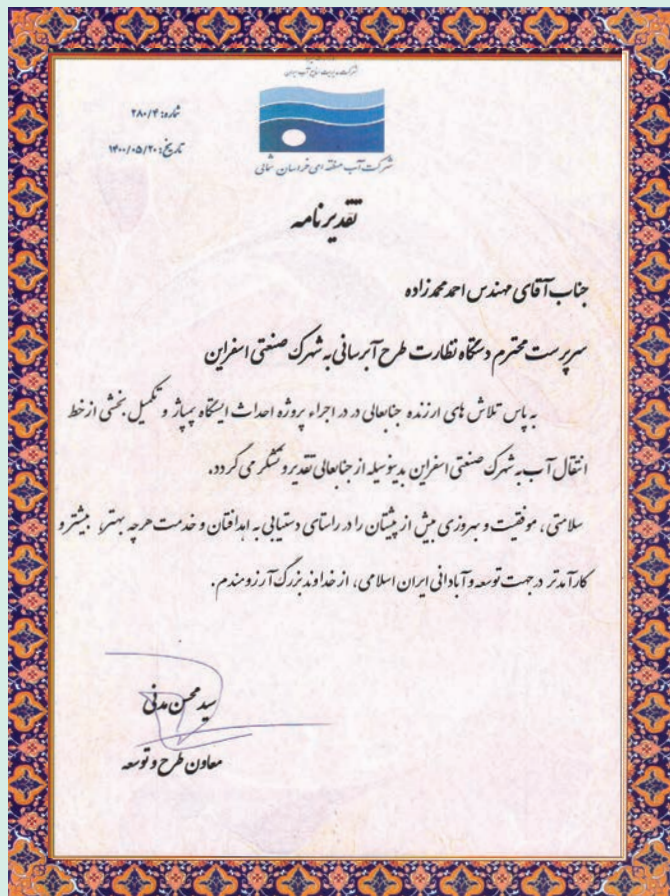 شرکت مدیریت منابع آب ایران
شماره: ۲۸۰/۴
تاریخ: ۱۴۰۰/۰۵/۲۰
شرکت آب منطقه ای خراسان شمالی
تقدیرنامه
جناب آقای مهندس احمد محمدزاده
سرپرست محترم دستگاه نظارت طرح آبرسانی به شهرک صنعتی اسفراین
به پاس تلاش های ارزنده جنابعالی در در اجراء پروژه احداث ایستگاه پمپاژ و تکمیل بخشی از خط
انتقال آب به شهرک صنعتی اسفراین بدینوسیله از جنابعالی تقدیر و تشکر می گردد.
سلامتی، موفقیت و بهروزی بیش از پیشتان را در راستای دستیابی به اهدافتان و خدمت هرچه بهتر، بیشتر و
کارآمدتر در جهت توسعه و آبادانی ایران اسلامی، از خداوند بزرگ آرزومندم.
سید محسن مدنی
معاون طرح و توسعه